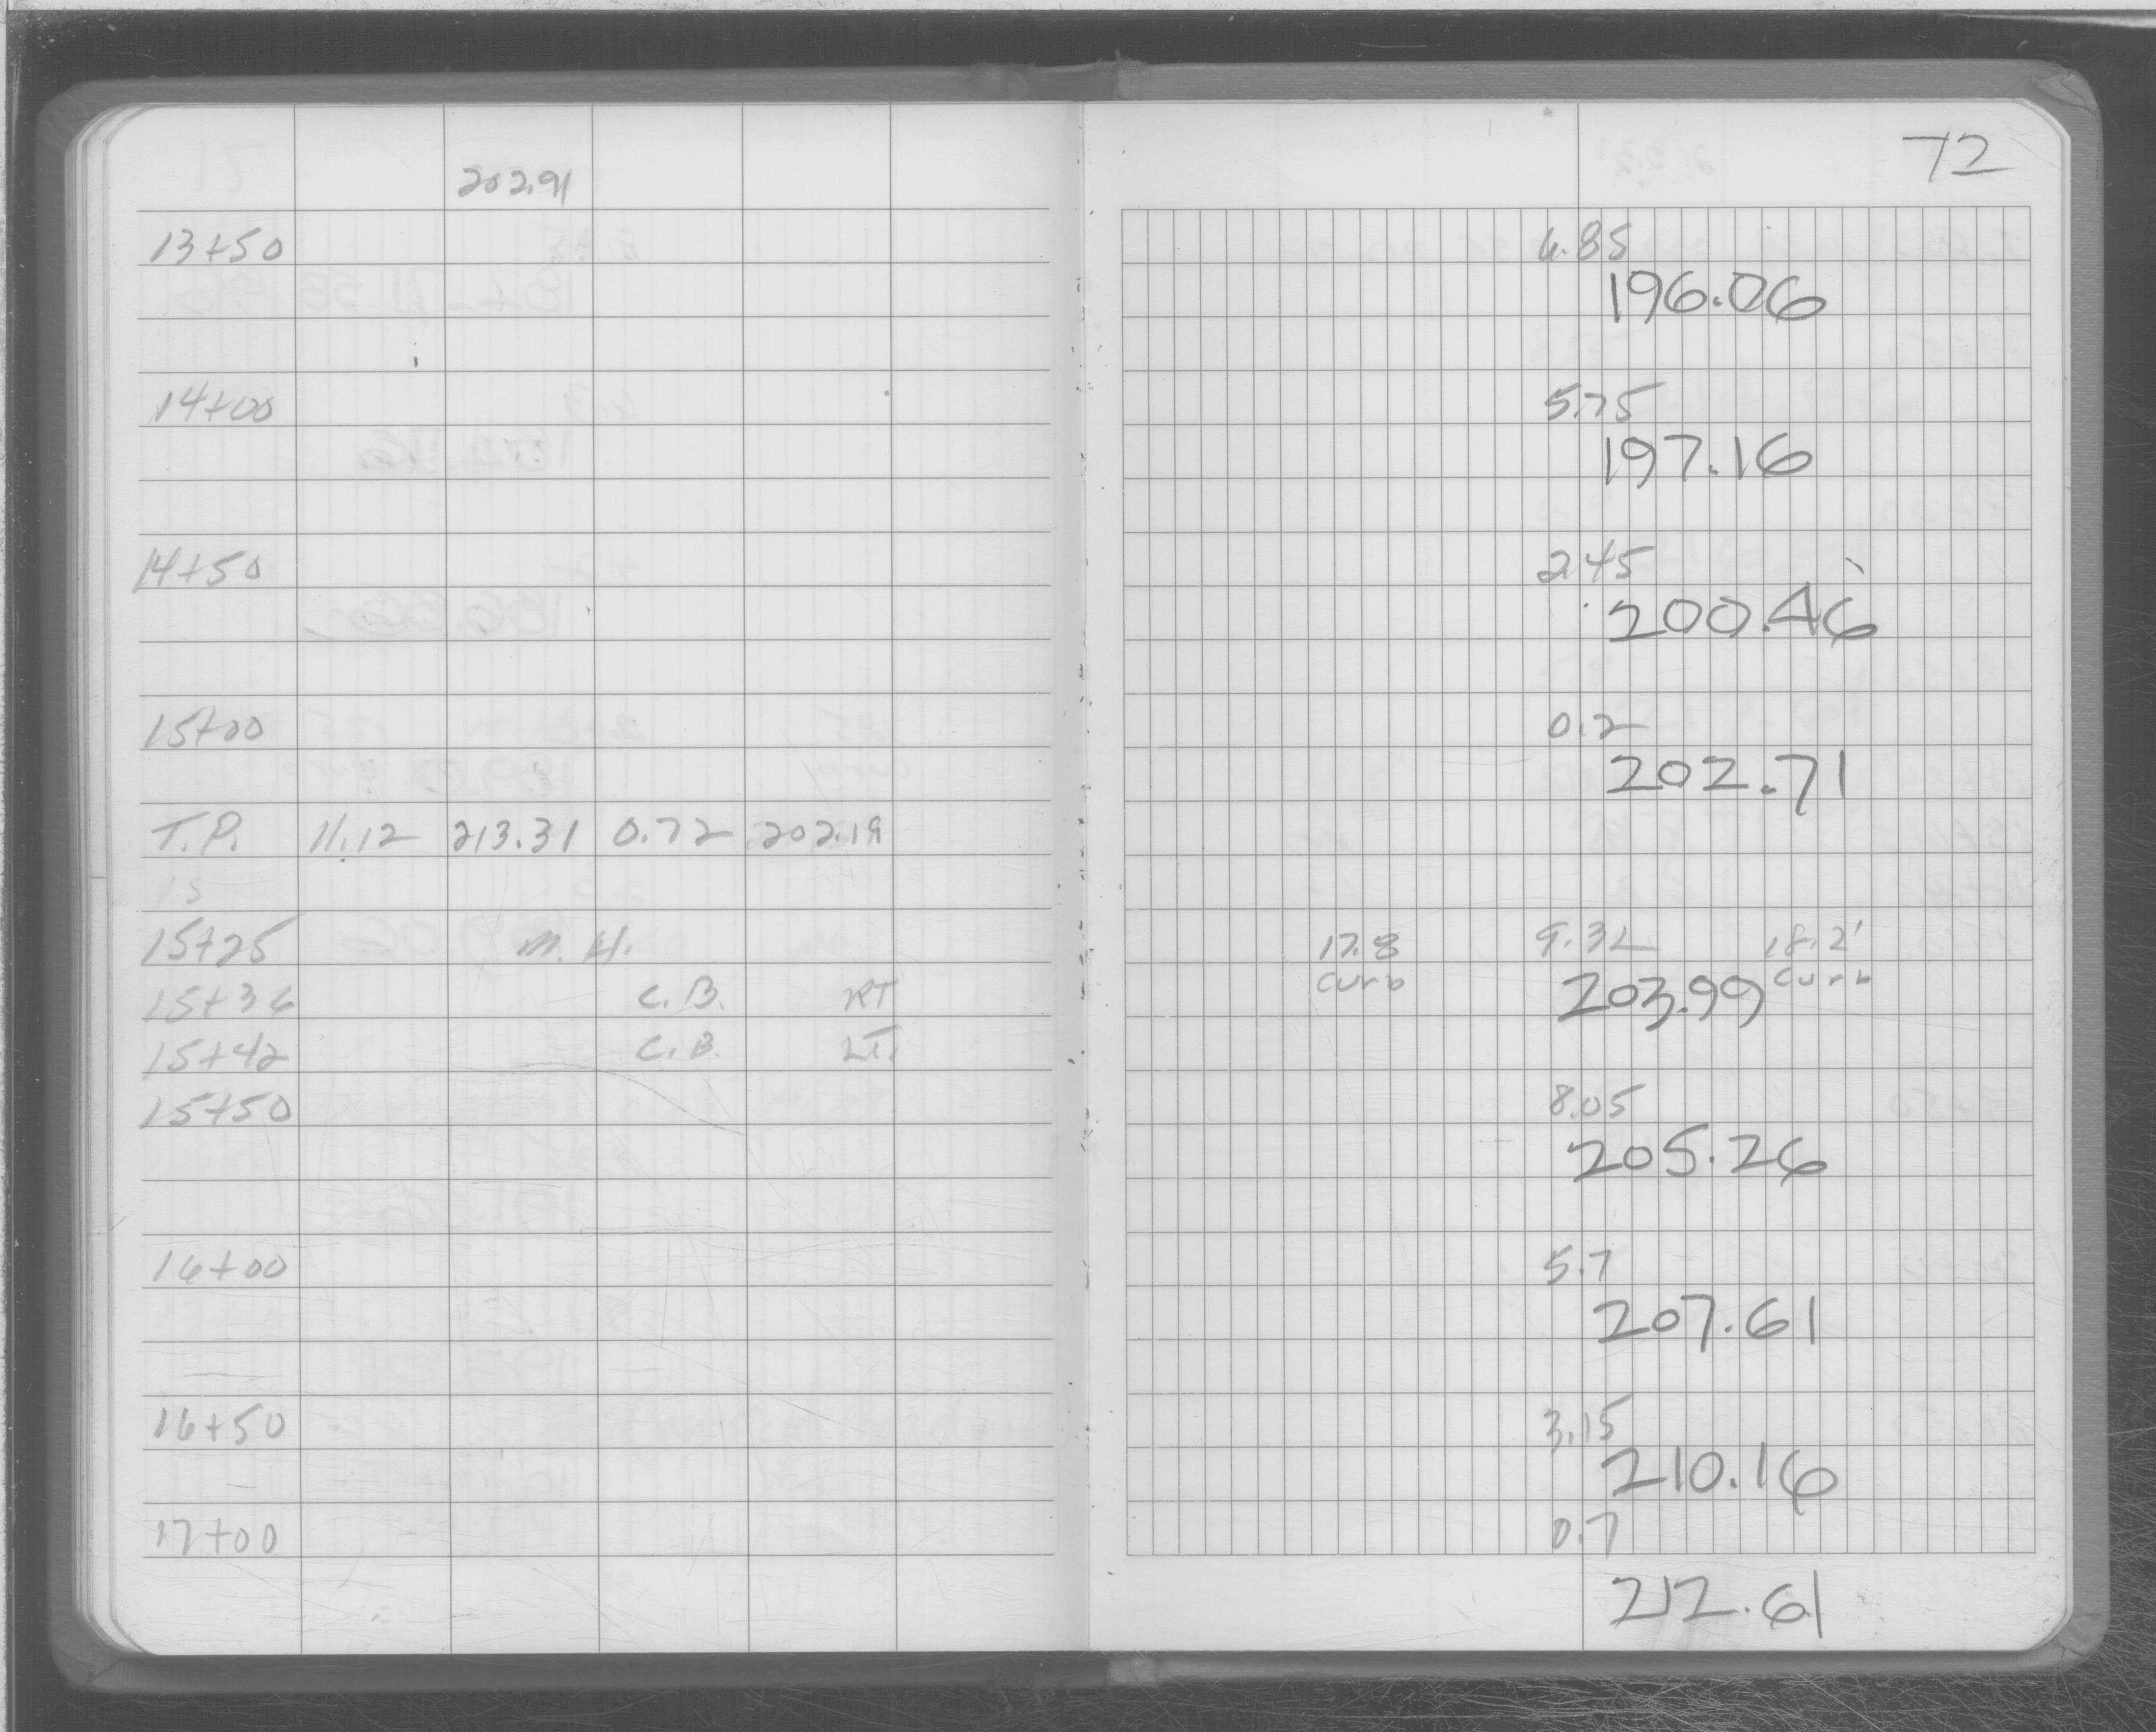 72
202.91
13+50 6.85
196.06
14+00 5.75
197.16
14+50 2.45
200.46
15+00 0.2
202.71
T.P. 11.12 213.31 0.72 202.19
15
15+25 M.H. 17.8 9.32 18.2'
curb curb
15+36 C.B. RT 203.99
15+42 C.B. LT.
15+50 8.05
205.26
16+00 5.7
207.61
16+50 3.15
210.16
17+00 0.7
212.61